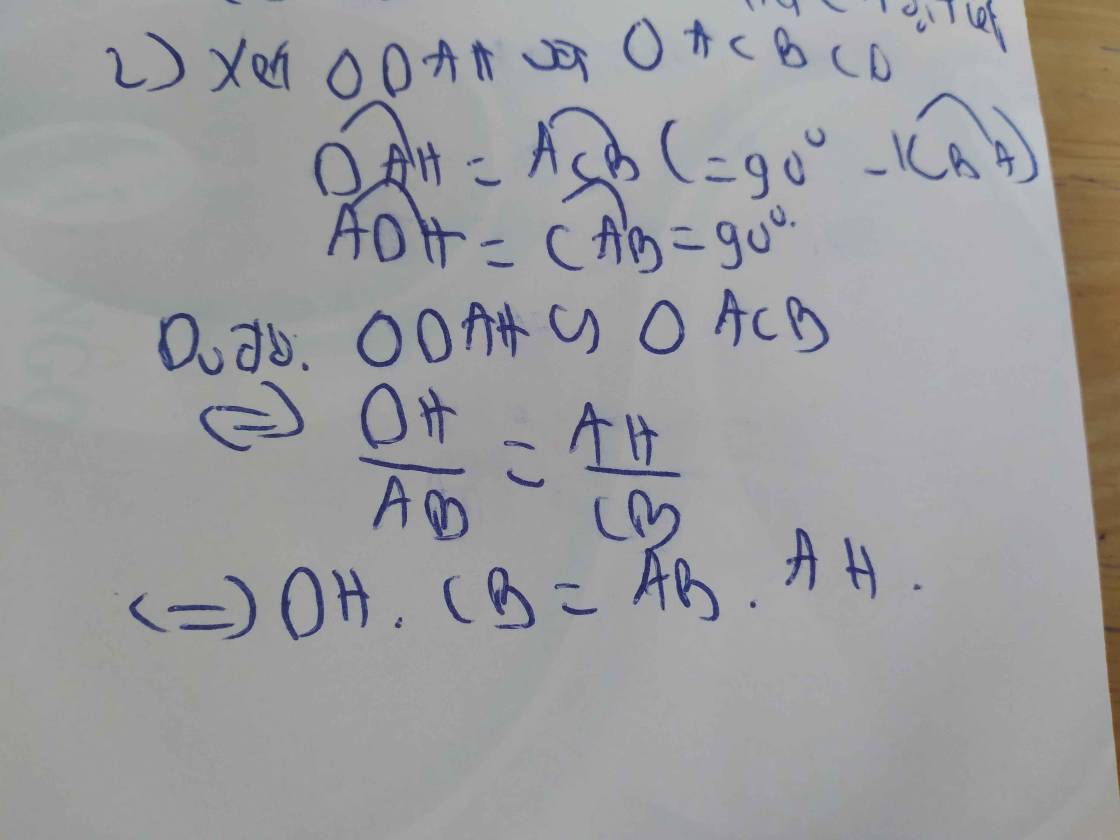 2) Xét △DAH và △ACB có
DAH = ACB (= 90° - CBA)
ADH = CAB = 90°.
Do đó. △DAH ∽ △ACB
<=> DH/AB = AH/CB
<=> DH. CB = AB. AH.